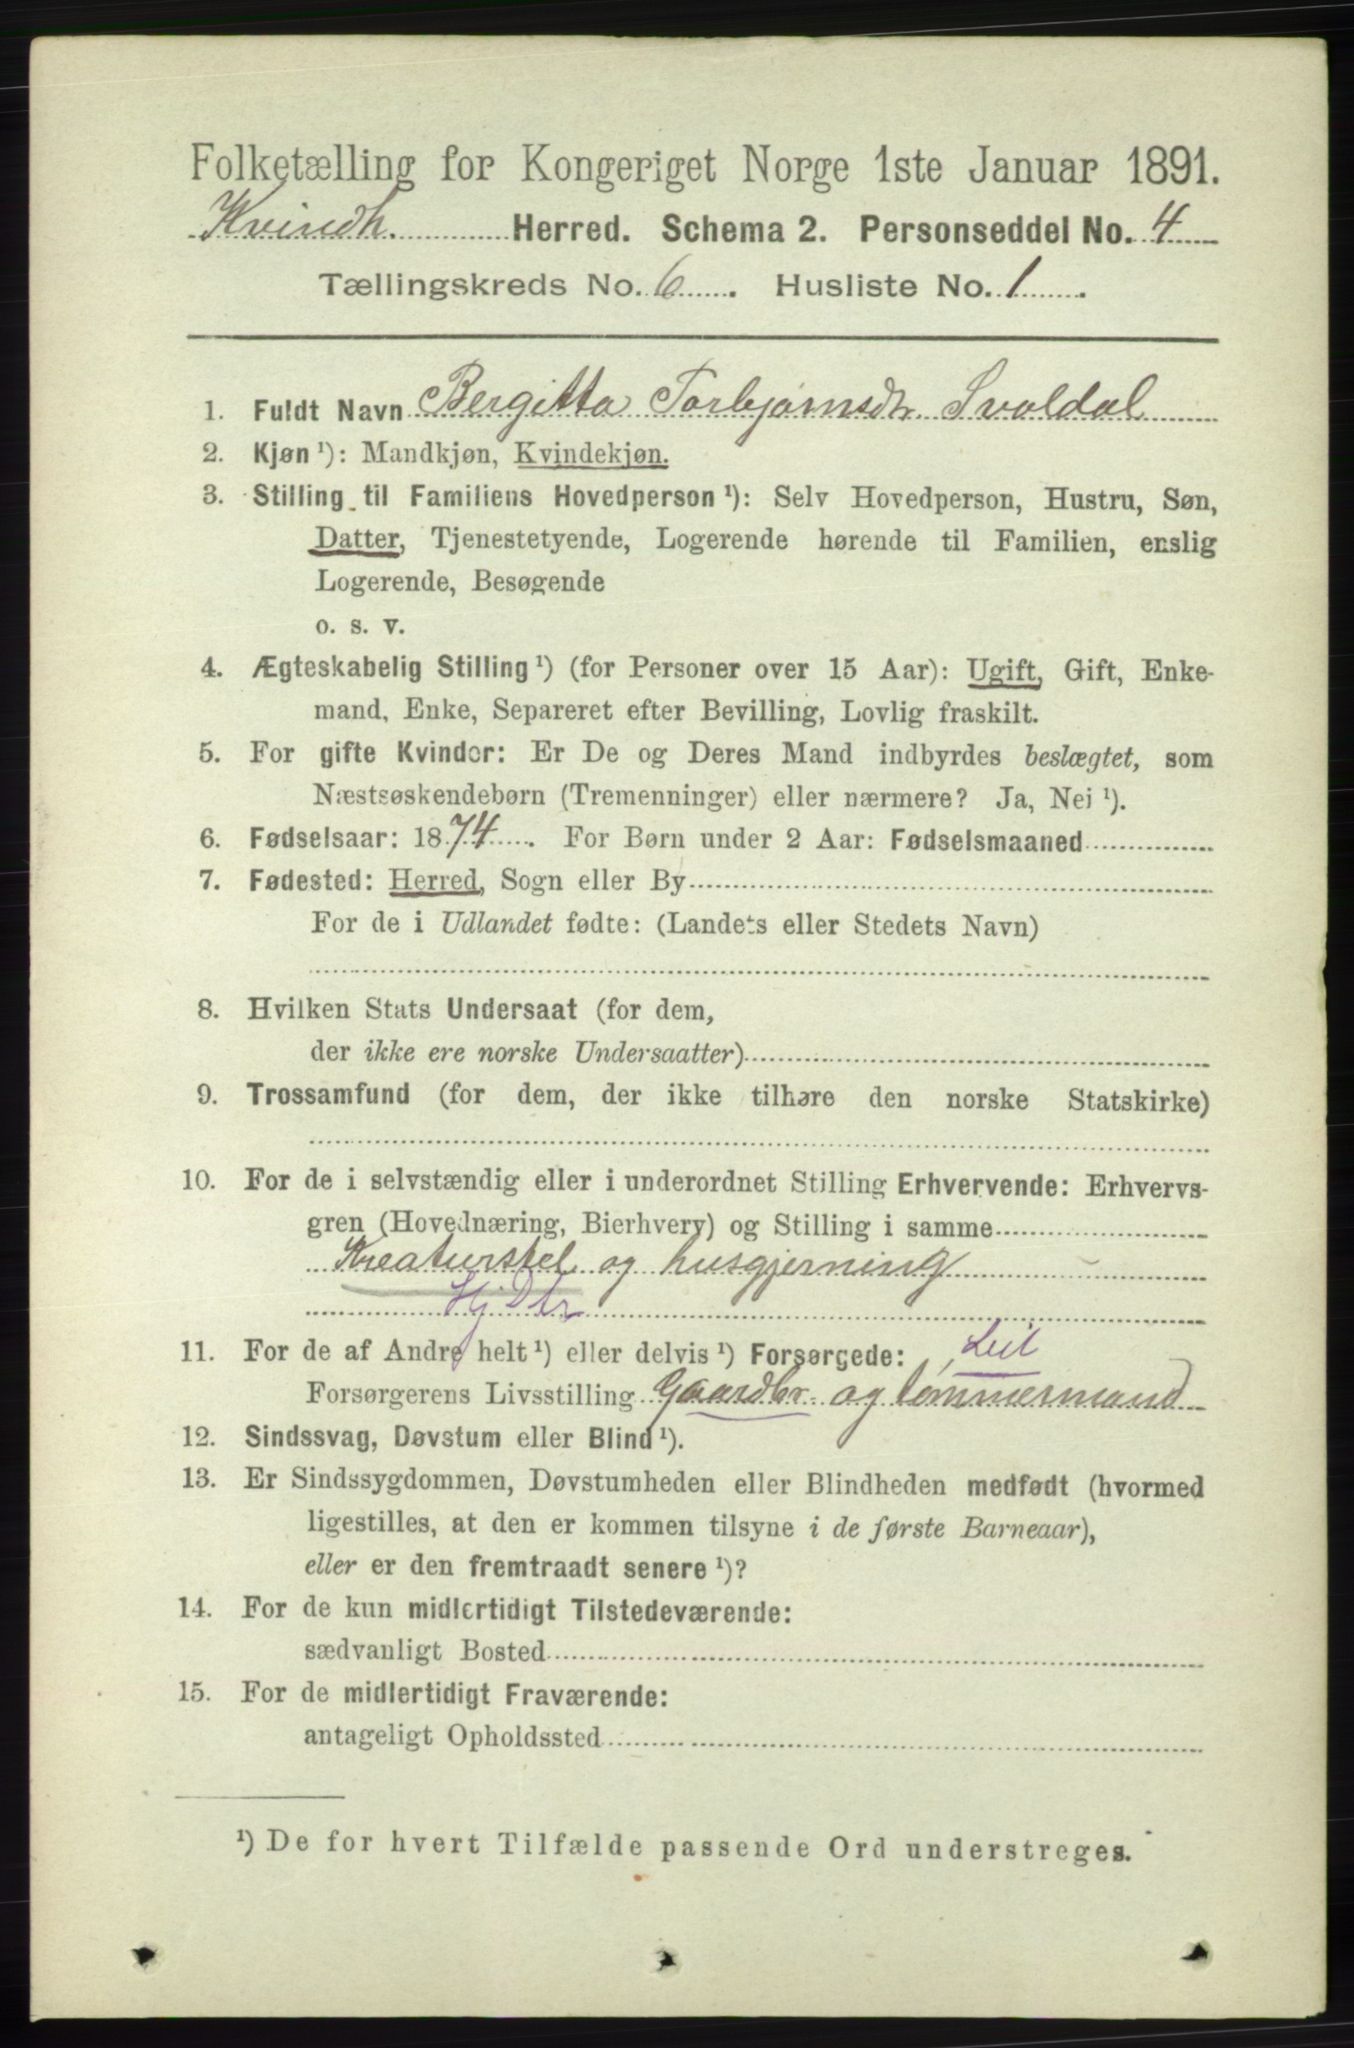 Folketælling for Kongeriget Norge 1ste Januar 1891.
Kvindh. Herred. Schema 2. Personseddel No. 4
Tællingskreds No. 6. Husliste No. 1.
1. Fuldt Navn Bergitta Torbjørnsdr. Svaldal
2. Kjøn ¹): Mandkjøn, Kvindekjøn.
3. Stilling til Familiens Hovedperson ¹): Selv Hovedperson, Hustru, Søn,
Datter, Tjenestetyende, Logerende hørende til Familien, enslig
Logerende, Besøgende
o. s. v.
4. Ægteskabelig Stilling ¹) (for Personer over 15 Aar): Ugift, Gift, Enke-
mand, Enke, Separeret efter Bevilling, Lovlig fraskilt.
5. For gifte Kvinder: Er De og Deres Mand indbyrdes beslægtet, som
Næstsøskendebørn (Tremenninger) eller nærmere? Ja, Nei ¹).
6. Fødselsaar: 1874. For Børn under 2 Aar: Fødselsmaaned
7. Fødested: Herred, Sogn eller By
For de i Udlandet fødte: (Landets eller Stedets Navn)
8. Hvilken Stats Undersaat (for dem,
der ikke ere norske Undersaatter)
9. Trossamfund (for dem, der ikke tilhøre den norske Statskirke)
10. For de i selvstændig eller i underordnet Stilling Erhvervende: Erhvervs-
gren (Hovednæring, Bierhverv) og Stilling i samme
Kreaturstel og husgjerning
Hj Dtr
11. For de af Andre helt ¹) eller delvis ¹) Forsørgede: Leil
Forsørgerens Livsstilling Gaardbr. og tømmermand
12. Sindssvag, Døvstum eller Blind ¹).
13. Er Sindssygdommen, Døvstumheden eller Blindheden medfødt (hvormed
ligestilles, at den er kommen tilsyne i de første Barneaar),
eller er den fremtraadt senere ¹)?
14. For de kun midlertidigt Tilstedeværende:
sædvanligt Bosted
15. For de midlertidigt Fraværende:
antageligt Opholdssted
¹) De for hvert Tilfælde passende Ord understreges.